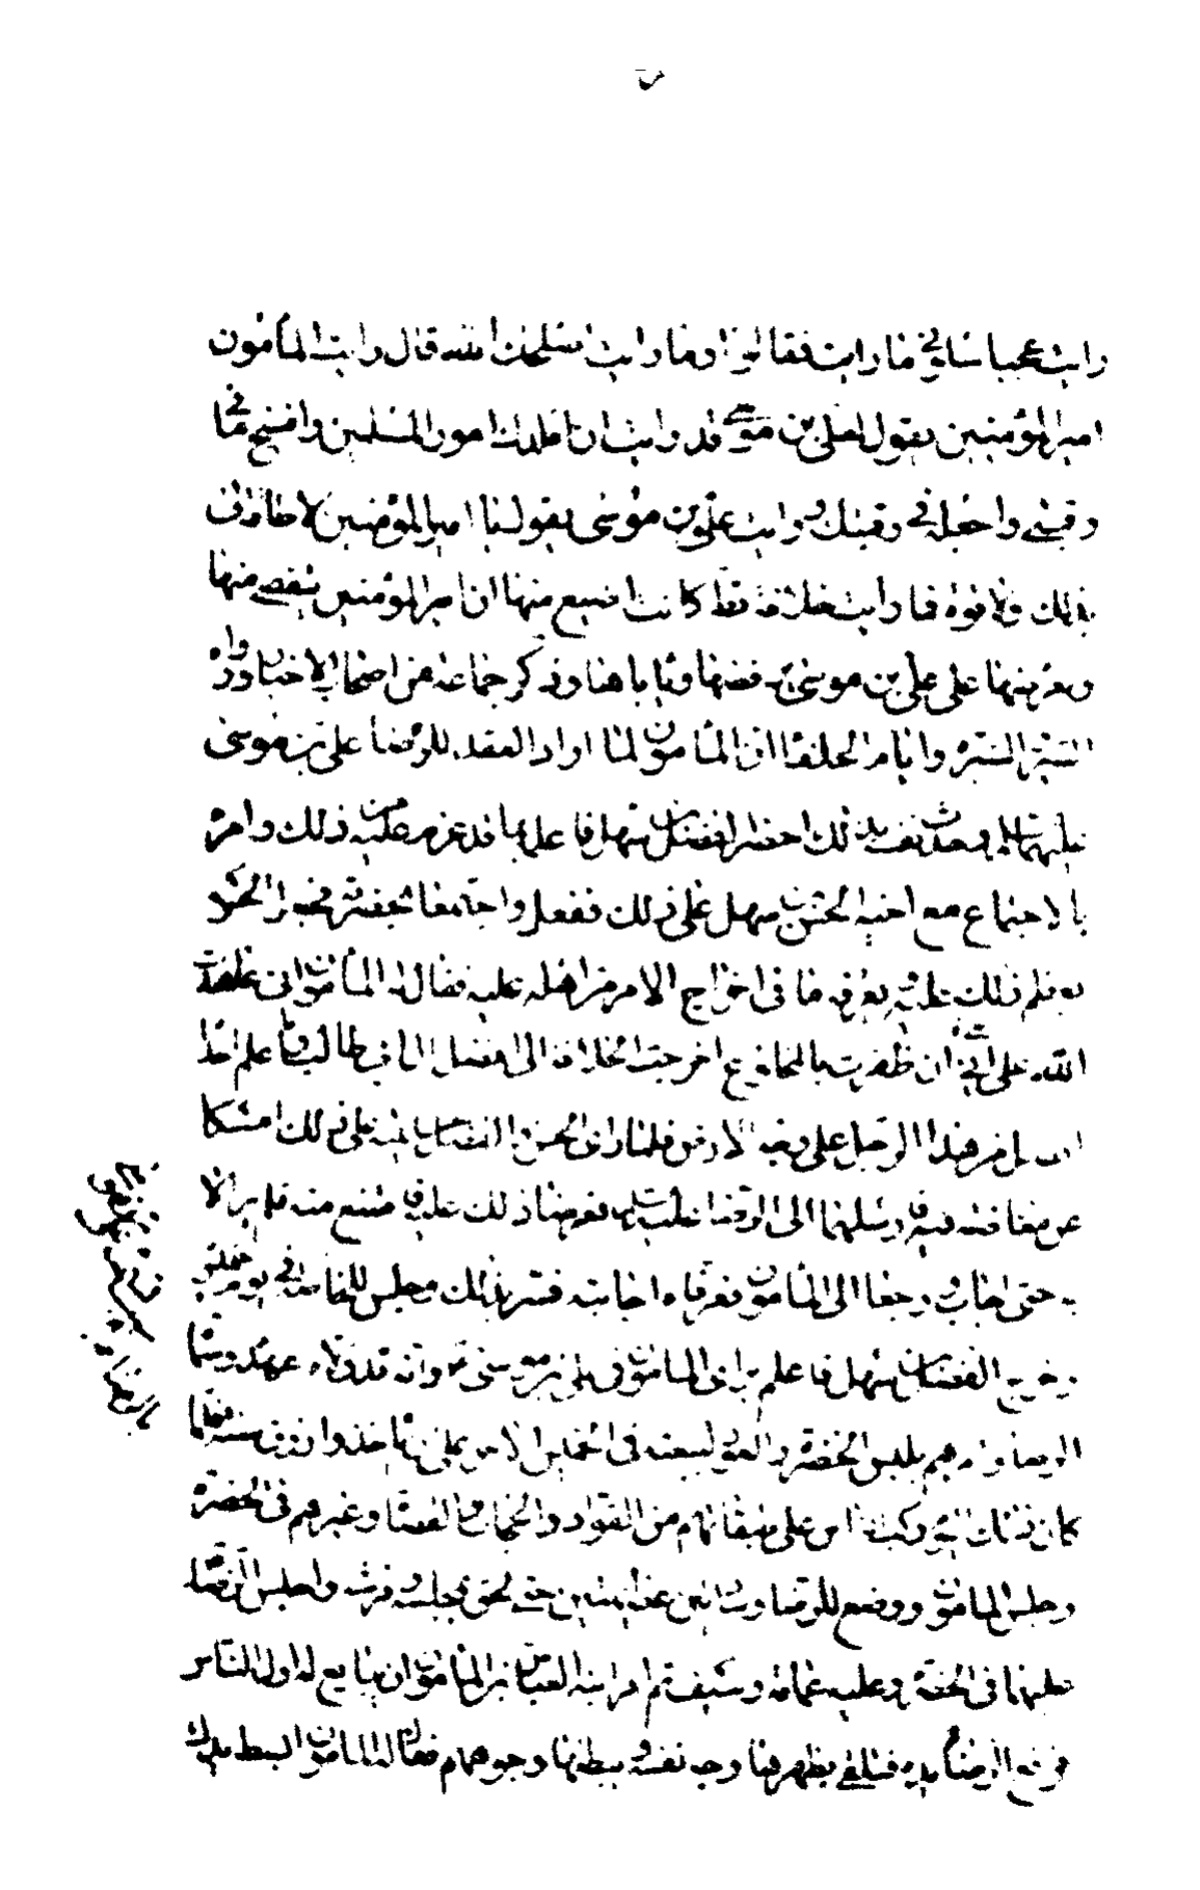 رايت عجبا سلوني ما رايت فقالوا وما رايت اصلحك الله قال رايت المأمون
امير المؤمنين يقول لعلي بن موسى قد رايت ان اقلدك امور المسلمين وافسخ ما في
رقبتي واجعله في رقبتك ورايت علي بن موسى يقول يا امير المؤمنين لا طاقة لي
بذلك ولا قوة فما رايت خلافة قط كانت اضيع منها ان امير المؤمنين يتفصى منها
ويعرضها على علي بن موسى فيرفضها ويأباها وذكر جماعة من اصحاب الاخبار ورواة
السير وايام الخلفا ان المأمون لما اراد العقد للرضا علي بن موسى
عليهما السلام وحدث نفسه بذلك احضر الفضل بن سهل فاعلمه بما قد عزم عليه من ذلك وامره
بالاجتماع مع اخيه الحسن بن سهل على ذلك ففعل واجتمعا بحضرته فجعل الحسن
يعظم ذلك عليه ويعرفه ما في اخراج الامر من اهله عليه فقال له المأمون اني عاهدت
الله على انني ان ظفرت بالمخلوع اخرجت الخلافة الى افضل ال ابي طالب وما اعلم احدا
افضل من هذا الرجل على وجه الارض فلما راى الحسن والفضل عزيمته على ذلك امسكا
عن معارضته فيه فارسلهما الى الرضا عليه السلام فعرضا ذلك عليه فامتنع منه فلم يزالا
به حتى اجاب ورجعا الى المأمون فعرفاه اجابته فسر بذلك وجلس للخاصة في يوم خميس
وخرج الفضل بن سهل فاعلم براى المأمون في علي بن موسى وانه قد ولاه عهده وسماه
الرضا وامرهم بلبس الخضرة والعود لبيعته في الخميس الاخر على ان يأخذوا رزق سنة فلما
كان ذلك اليوم ركب الناس على طبقاتهم من القواد والحجاب والقضاة وغيرهم في الخضرة
وجلس المأمون ووضع للرضا وسادتين عظيمتين حتى لحق بمجلسه وفرشه واجلس الرضا
عليهما في الخضرة وعليه عمامة وسيف ثم امر ابنه العباس بن المأمون ان يبايع له اول الناس
فرفع الرضا يده فتلقى بظهرها وجه نفسه وببطنها وجوههم فقال له المأمون ابسط يدك